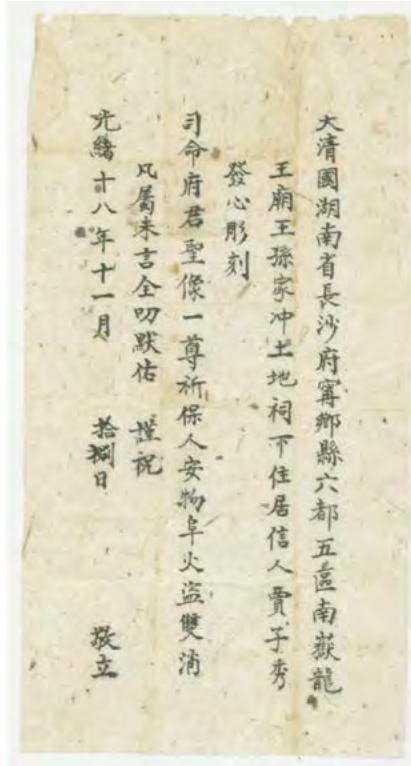 大清國湖南省長沙府寧鄉縣六都五區南嶽龍
王廟王孫家冲土地祠下住居信人賈子秀
發心彫刻
司命府君聖像一尊祈保人安物阜火盜雙消
凡屬未言全叨默佑 謹祝
光緒廿八年十一月 拾捌日 敬立